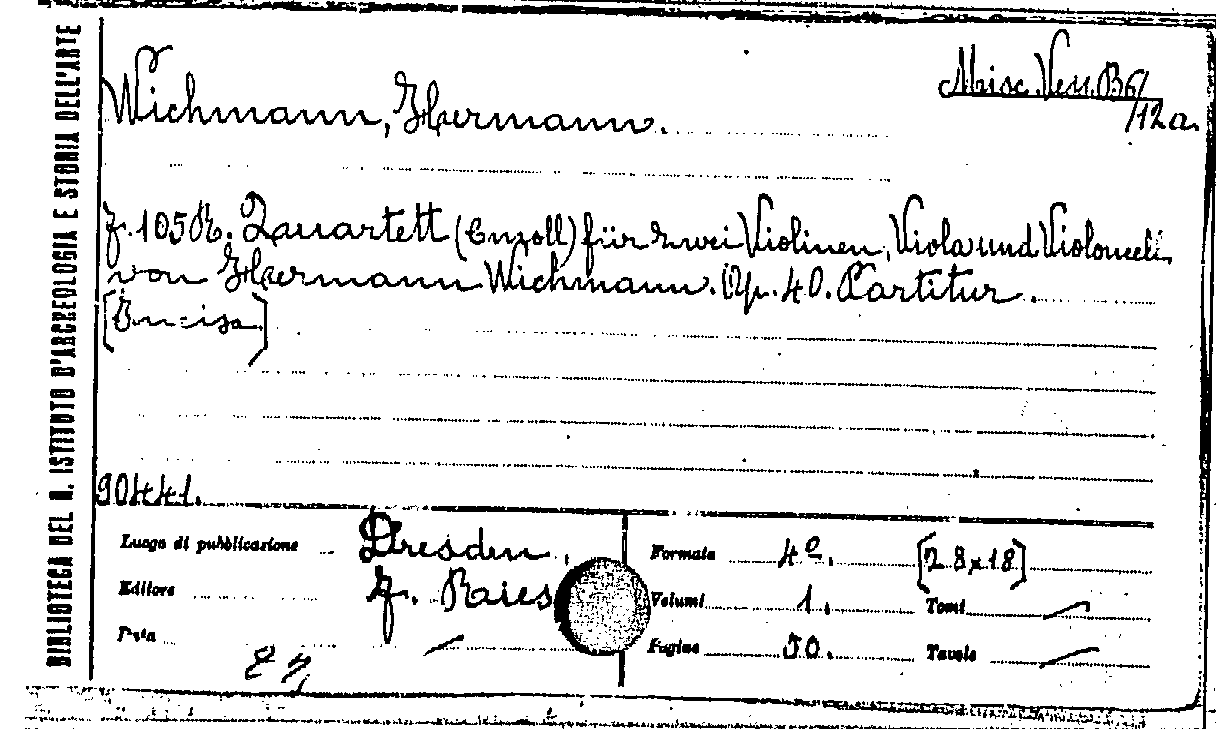 BIBLIOTECA DEL R. ISTITUTO D'ARCHEOLOGIA E STORIA DELL'ARTE
Misc. Vess. B6/
/12a.
Wichmann, Hermann.
F. 105 R. Quartett (Cmoll) für zwei Violinen, Viola und Violoncell.
von Hermann Wichmann. Op. 40. Partitur.
[Incisa]
90441.
Luogo di pubblicazione Dresden. Formato 4º. [28x18]
Editore F. Raies Volumi 1. Tomi
Data Pagine 50. Tavole